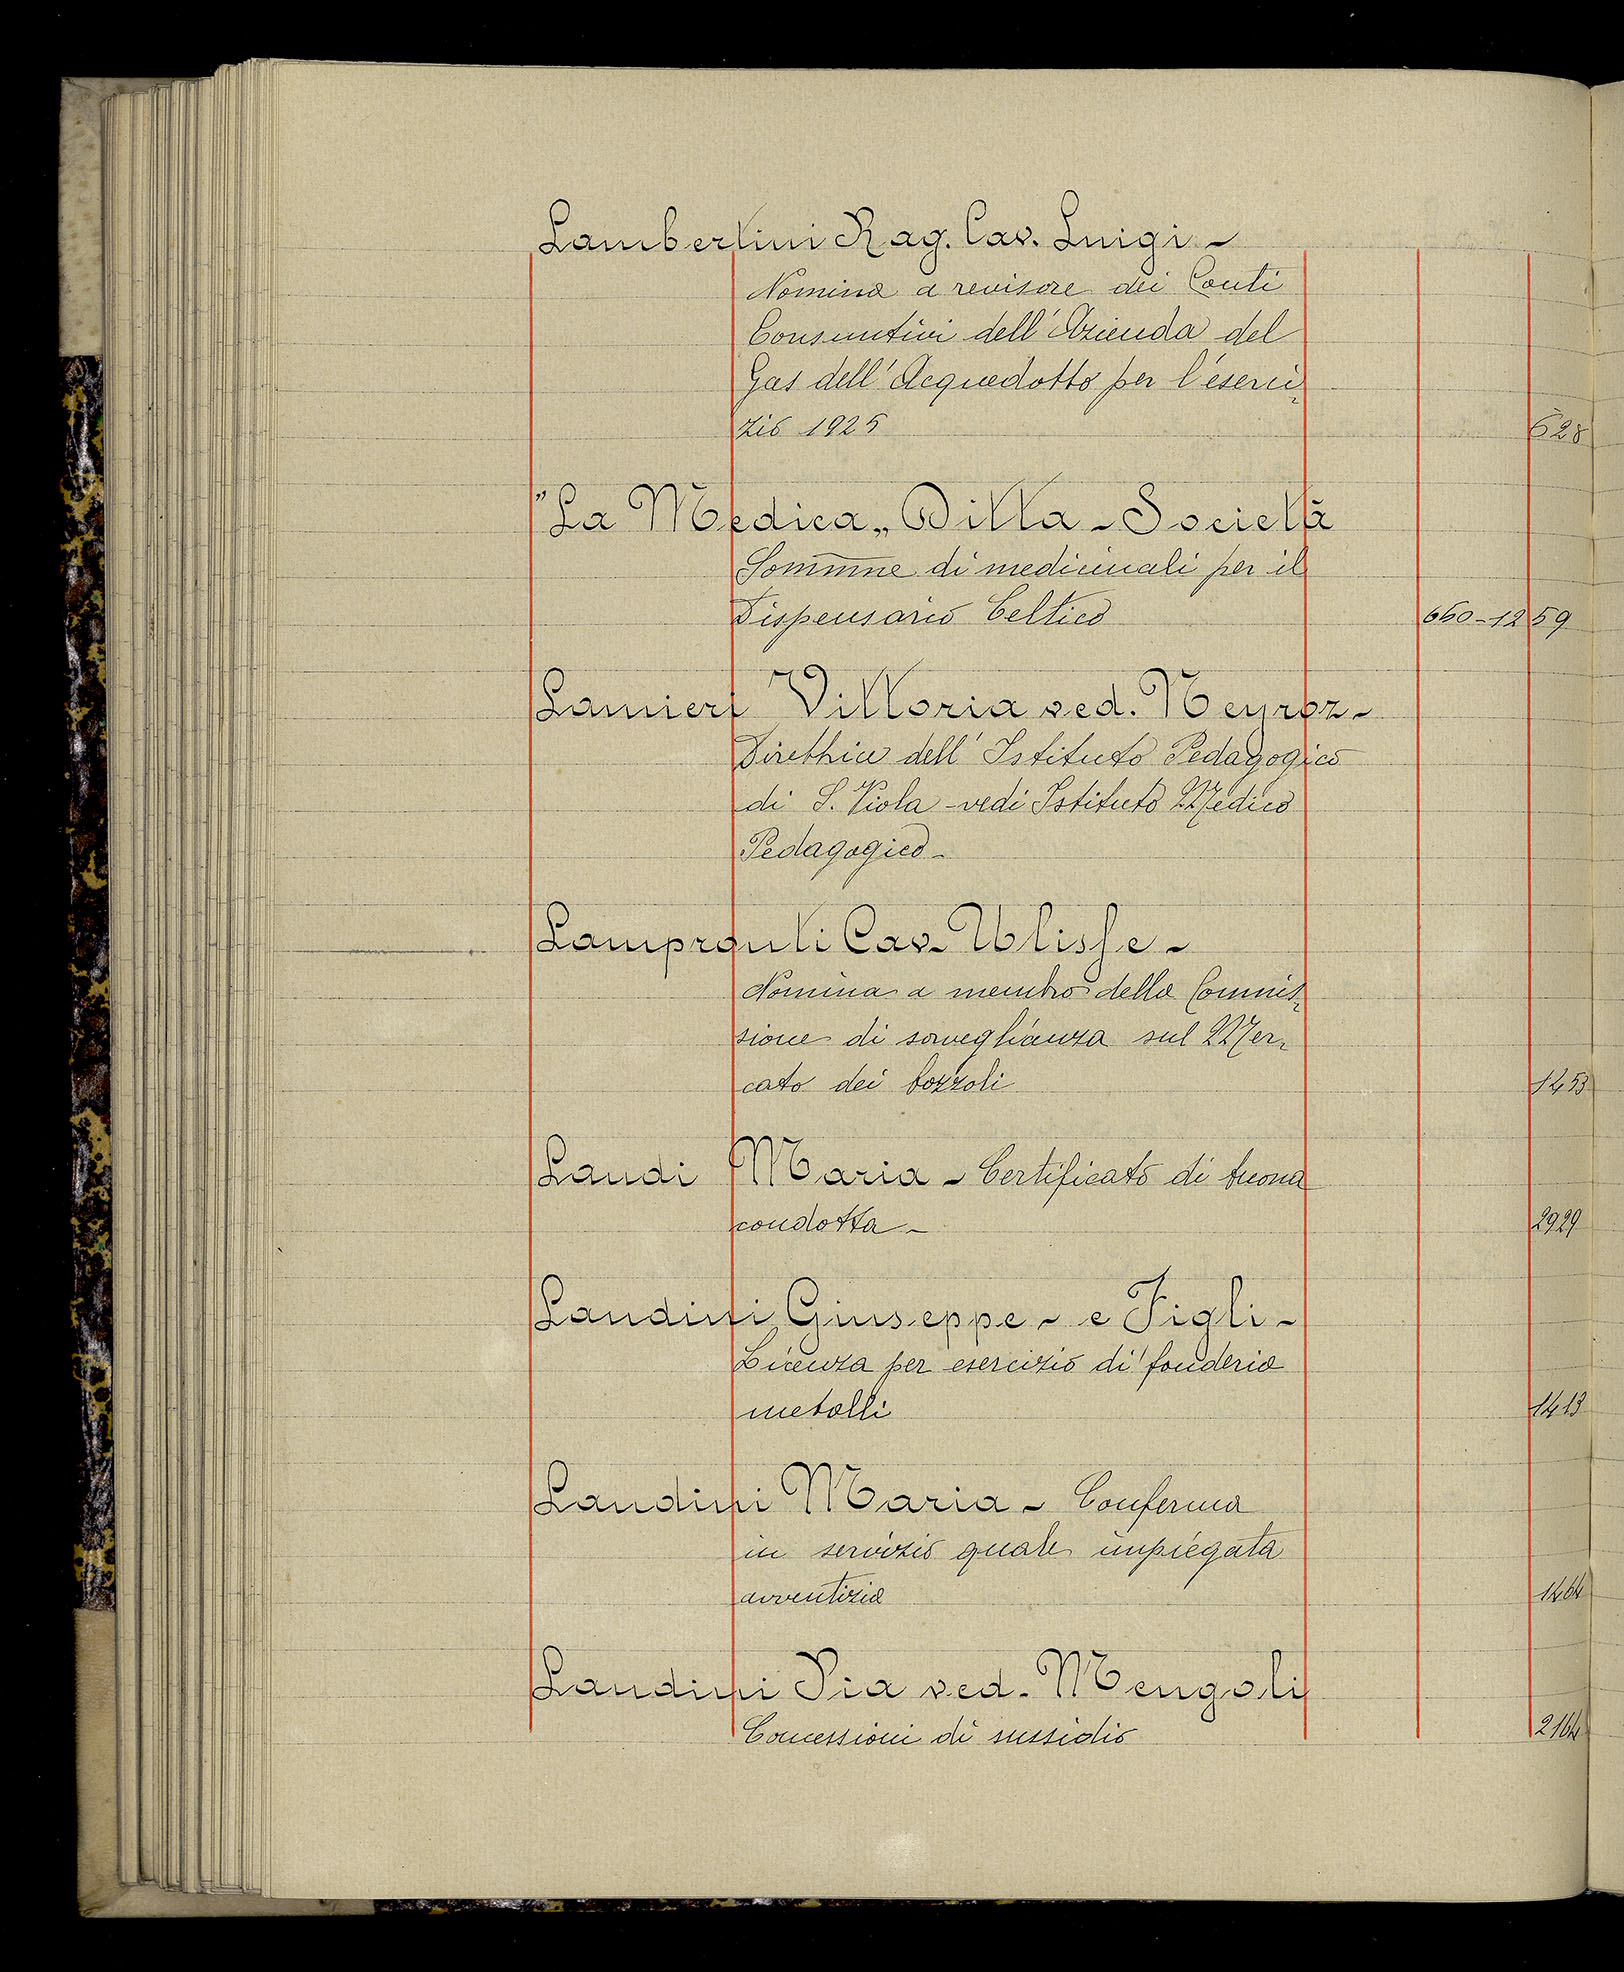 Lambertini Rag. Cav. Luigi -
Nomina a revisore dei Conti
Consuntivi dell'Azienda del
Gas dell'Acquedotto per l'eserci-
zio 1925 628
"La Medica„ Ditta - Società
Somme di medicinali per il
Dispensario Celtico 660-1259
Lamieri Vittoria ved. Neyroz -
Direttrice dell'Istituto Pedagogico
di S. Viola - vedi Istituto Medico
Pedagogico -
Lampronti Cav. Ulisse -
Nomina a membro della Commis-
sione di sorveglianza sul Mer-
cato dei bozzoli 1453
Landi Maria - Certificato di buona
condotta - 2929
Landini Giuseppe - e Figli -
Licenza per esercizio di fonderia
metalli 1413
Landini Maria - Conferma
in servizio quale impiegata
avventizia 1464
Landini Pia ved. Mengoli
Concessioni di sussidio 2164